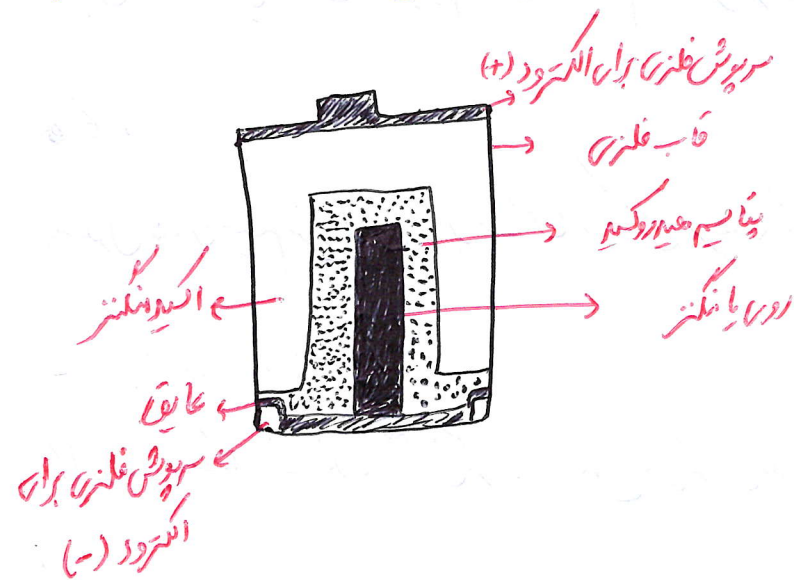 سرپوش فلزی برای الکترود (+)
قاب فلزی
پتاسیم هیدروکسید
روی یا منگنز
اکسید منگنز
عایق
سرپوش فلزی برای
الکترود (-)